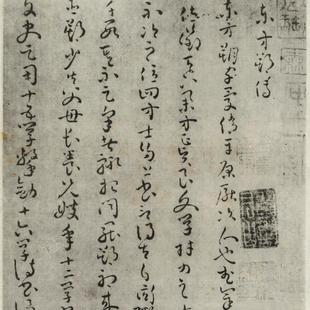 東方朔傳
東方朔字曼倩平原厭次人也武帝
位徵天下舉方正賢良文學材力之士
不次之位四方士多上書言得失自衒鬻
千數其不足采者輒報聞罷朔初來
臣朔少失父母長養兄嫂年十二學書
文史足用十五學擊劍十六學詩書誦